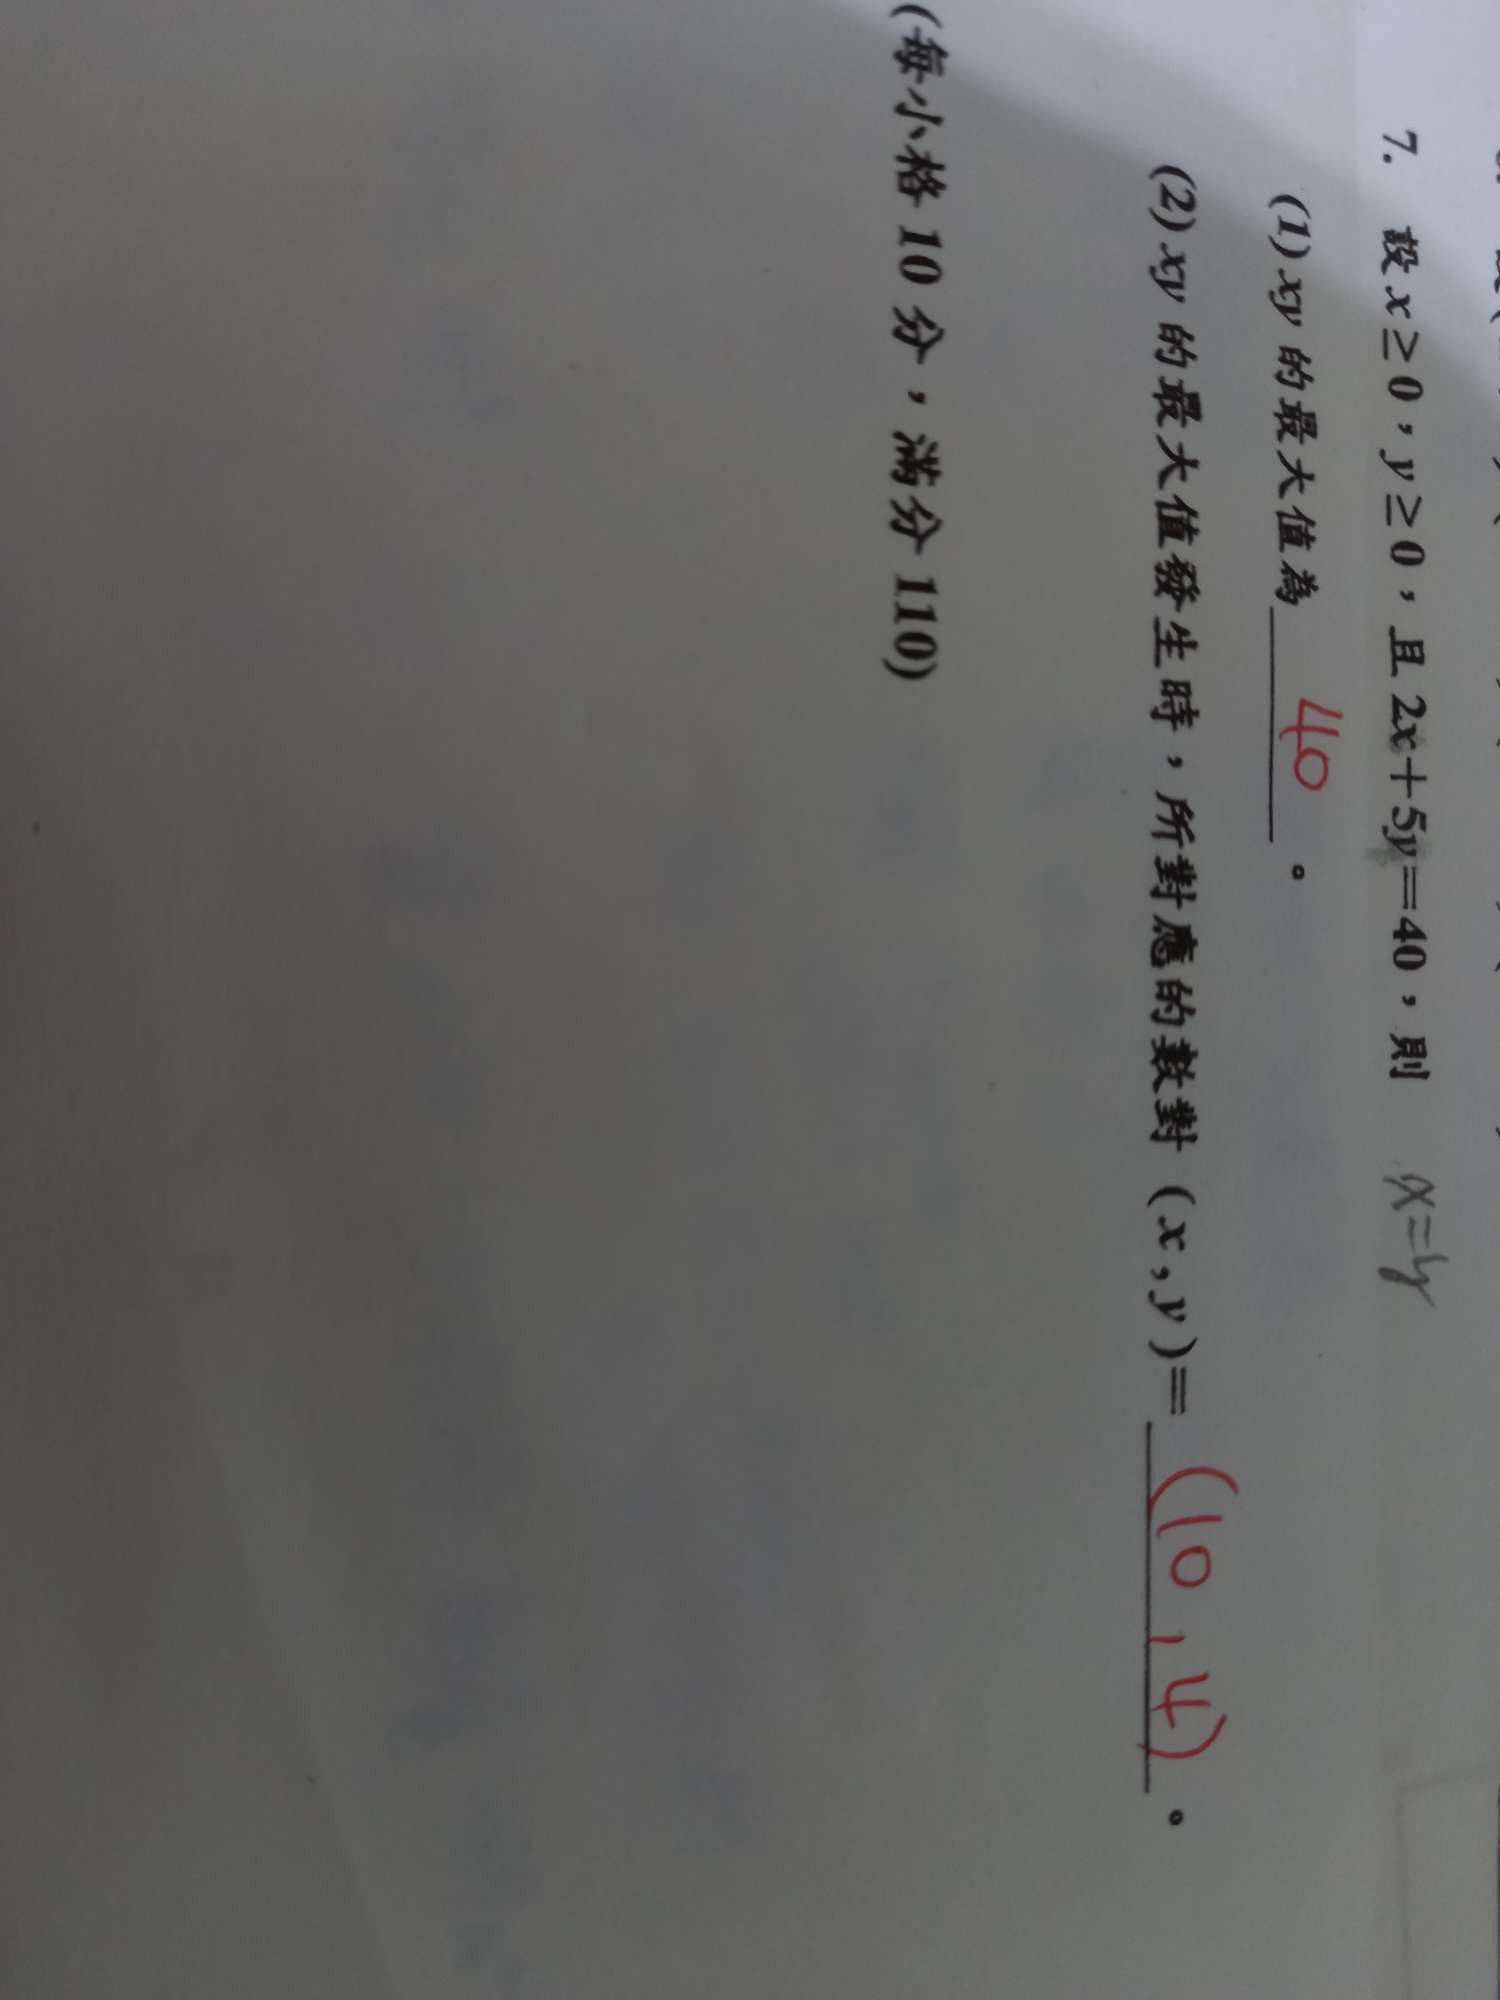 7. 設 x≥0,y≥0,且 2x+5y=40,則 x=y
(1) xy 的最大值為 40 。
(2) xy 的最大值發生時,所對應的數對 (x,y)= (10,4) 。
(每小格 10 分,滿分 110)